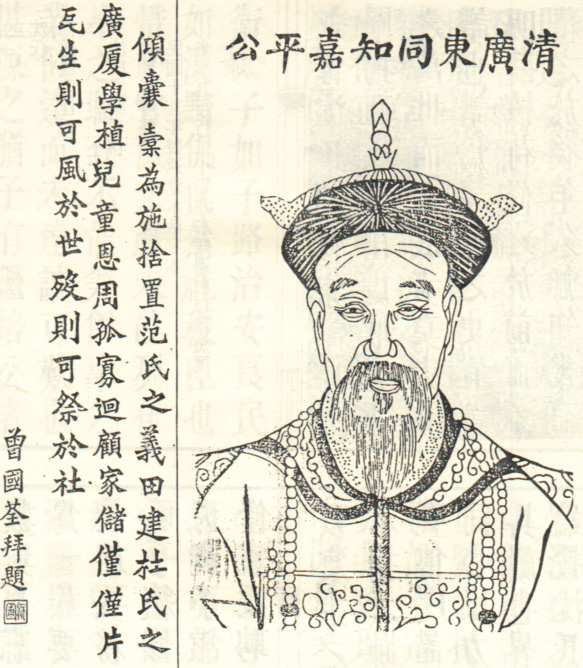 清廣東同知嘉平公
傾囊橐為施捨置范氏之義田建杜氏之
廣厦學植兒童恩周孤寡迴顧家儲僅僅片
瓦生則可風於世歿則可祭於社
曾國荃拜題